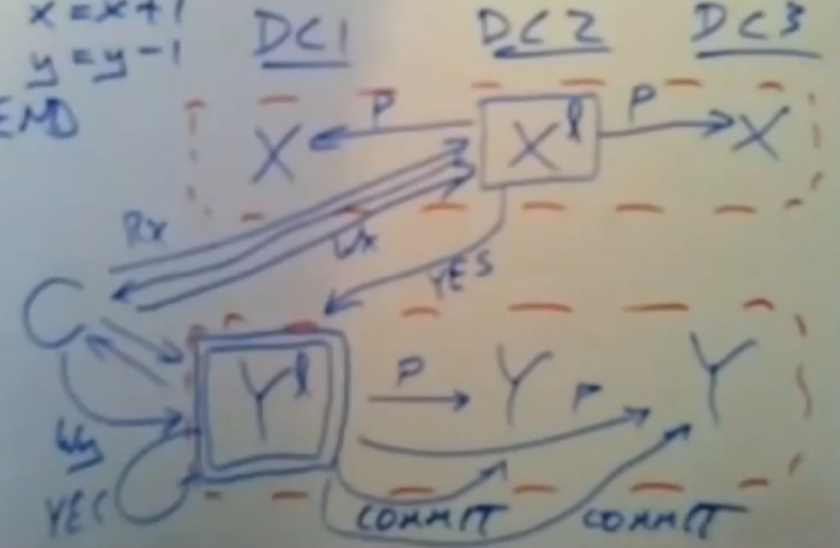 x=x+1
y=y-1
END
DC1 DC2 DC3
X P Xl P X
Rx
Wx
YES
C
Yl P Y P Y
Wy
YES
COMMIT COMMIT